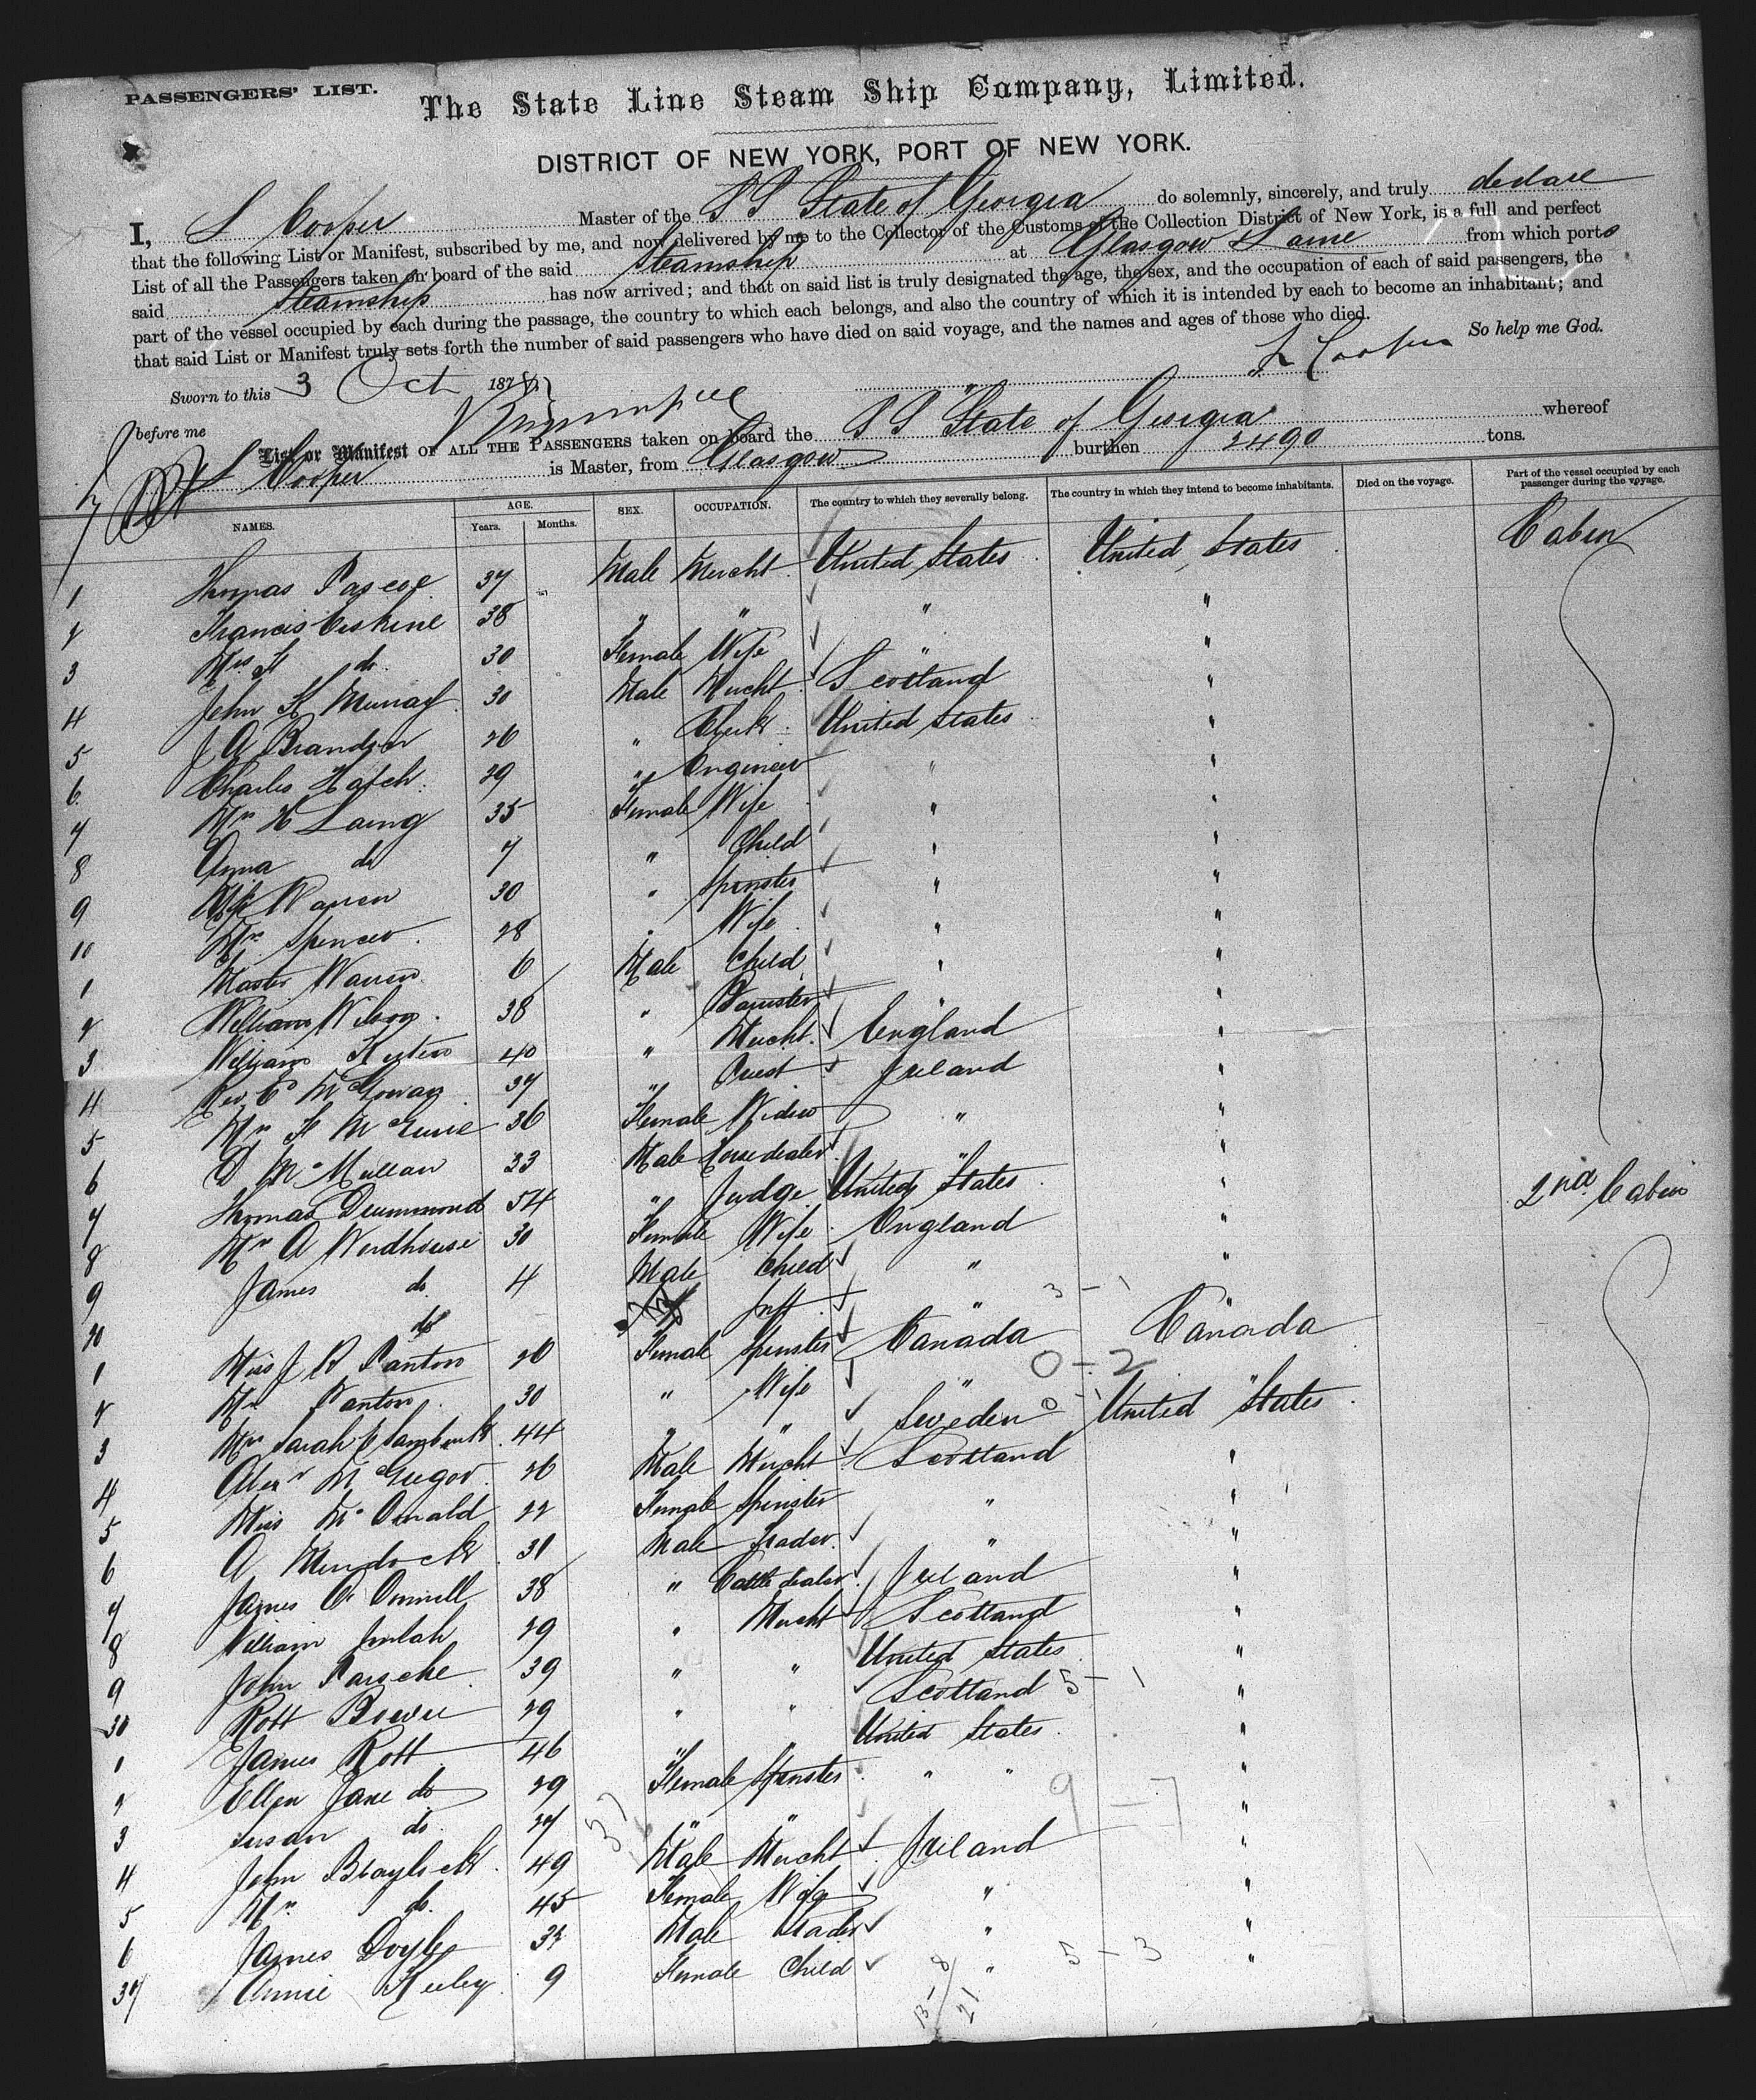 PASSENGERS' LIST.
The State Line Steam Ship Company, Limited.
DISTRICT OF NEW YORK, PORT OF NEW YORK.
I, L Cooper Master of the S S State of Georgia do solemnly, sincerely, and truly declare
that the following List or Manifest, subscribed by me, and now delivered by me to the Collector of the Customs of the Collection District of New York, is a full and perfect
List of all the Passengers taken on board of the said Steamship at Glasgow & Larne from which ports
said Steamship has now arrived; and that on said list is truly designated the age, the sex, and the occupation of each of said passengers, the
part of the vessel occupied by each during the passage, the country to which each belongs, and also the country of which it is intended by each to become an inhabitant; and
that said List or Manifest truly sets forth the number of said passengers who have died on said voyage, and the names and ages of those who died.
So help me God.
L Cooper
Sworn to this 3 Oct 1878
before me
List or Manifest OF ALL THE PASSENGERS taken on board the S S State of Georgia whereof
L Cooper is Master, from Glasgow burthen 2490 tons.
NAMES. AGE. Years. Months. SEX. OCCUPATION. The country to which they severally belong. The country in which they intend to become inhabitants. Died on the voyage. Part of the vessel occupied by each passenger during the voyage.
1 Thomas Pascoe 37 Male Mercht United States United States Cabin
2 Francis Erskine 38 " " " "
3 Mrs F do 30 Female Wife " "
4 John F Murray 30 Male Mercht Scotland "
5 J A 26 " Clerk United States "
6 Charles Hatch 29 " Engineer " "
7 Mrs H Laing 35 Female Wife " "
8 Anna do 7 " Child " "
9 Warren 30 " Spinster " "
10 Mrs Spencer 28 " Wife " "
1 Master Warren 6 Male Child " "
2 William Wilson 38 " Barrister " "
3 William 40 " Mercht England "
4 Rev C McGowan 37 " Priest Ireland "
5 Mrs F 36 Female Widow " "
6 D McMullan 33 Male Horsedealer " "
7 Thomas Drummond 54 " Judge United States " 2nd Cabin
8 Mrs A Woodhouse 30 Female Wife England "
9 James do 4 Male Child " "
20 do Inft " "
1 Miss J R Panton 20 Female Spinster Canada Canada
2 Mrs Panton 30 " Wife " "
3 Mrs Sarah 44 " " Sweden United States
4 Alexr McGregor 26 Male Mercht Scotland "
5 Miss McDonald 22 Female Spinster " "
6 A Murdock 31 Male Trader " "
7 James O'Donnell 38 " Cattle dealer Ireland "
8 William Imlah 29 " Mercht Scotland "
9 John 39 " " United States "
30 Robt 29 " " Scotland "
1 James Robb 46 " " United States "
2 Ellen Jane do 29 Female Spinster " " "
3 Susan do 27 " " "
4 John Blaylock 49 Male Mercht Ireland "
5 Mrs do 45 Female Wife " "
6 James Doyle 33 Male Trader " "
37 Annie 9 Female Child " "
3 - 1
0 - 2
5 - 1
9 - 7
5 - 3